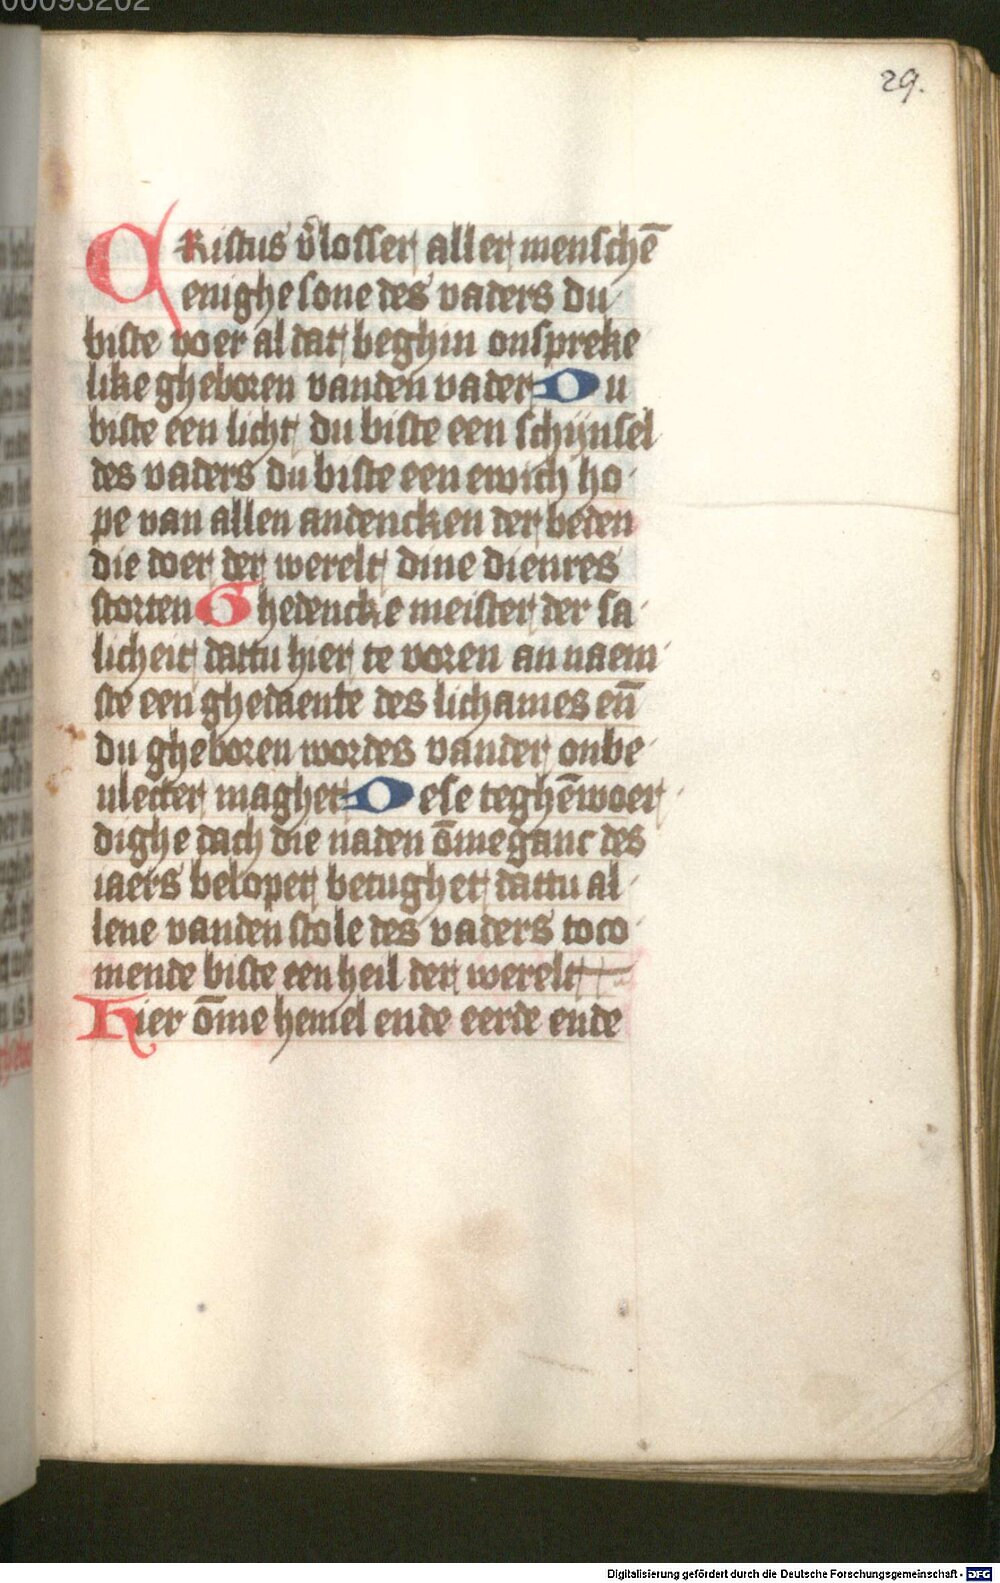 00093202
29.
CRistus v̄losser aller menschē
enighe sone des vaders du
biste voer al dat beghin onspreke
like gheboren vanden vader Du
biste een licht du biste een schijnsel
des vaders du biste een ewich ho
pe van allen andencken der beden
die doer der werelt dine dienres
storten Ghedencke meister der sa
licheit dattu hier te voren an naem
ste een ghedaente des lichames eñ
du gheboren wordes vander onbe
vlecter maghet Dese teghēwoer
dighe dach die naden ōmeganc des
iaers belopet betughet dattu al
lene vanden stole des vaders toco
mende biste een heil der werelt
Hier ōme hemel ende eerde ende
Digitalisierung gefördert durch die Deutsche Forschungsgemeinschaft - DFG